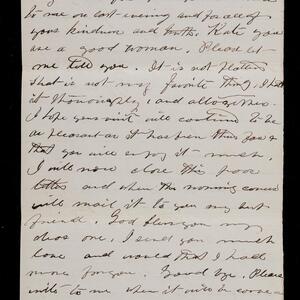 to me on last evening and for all of
your kindness and truth, Kate you
are a good woman. Please let
me tell you. It is not flattery
that is not my favorite thing, I hate
it thoroughly, and altogether.
I hope your visit will continue to be
as pleasant as it has been thus far &
that you will enjoy it much.
I will now close this poor
letter and when the morning comes
will mail it to you my best
friend. God bless you my
dear one, I send you much
love and would that I had
more for you. Good bye. Please
write to me when it will be